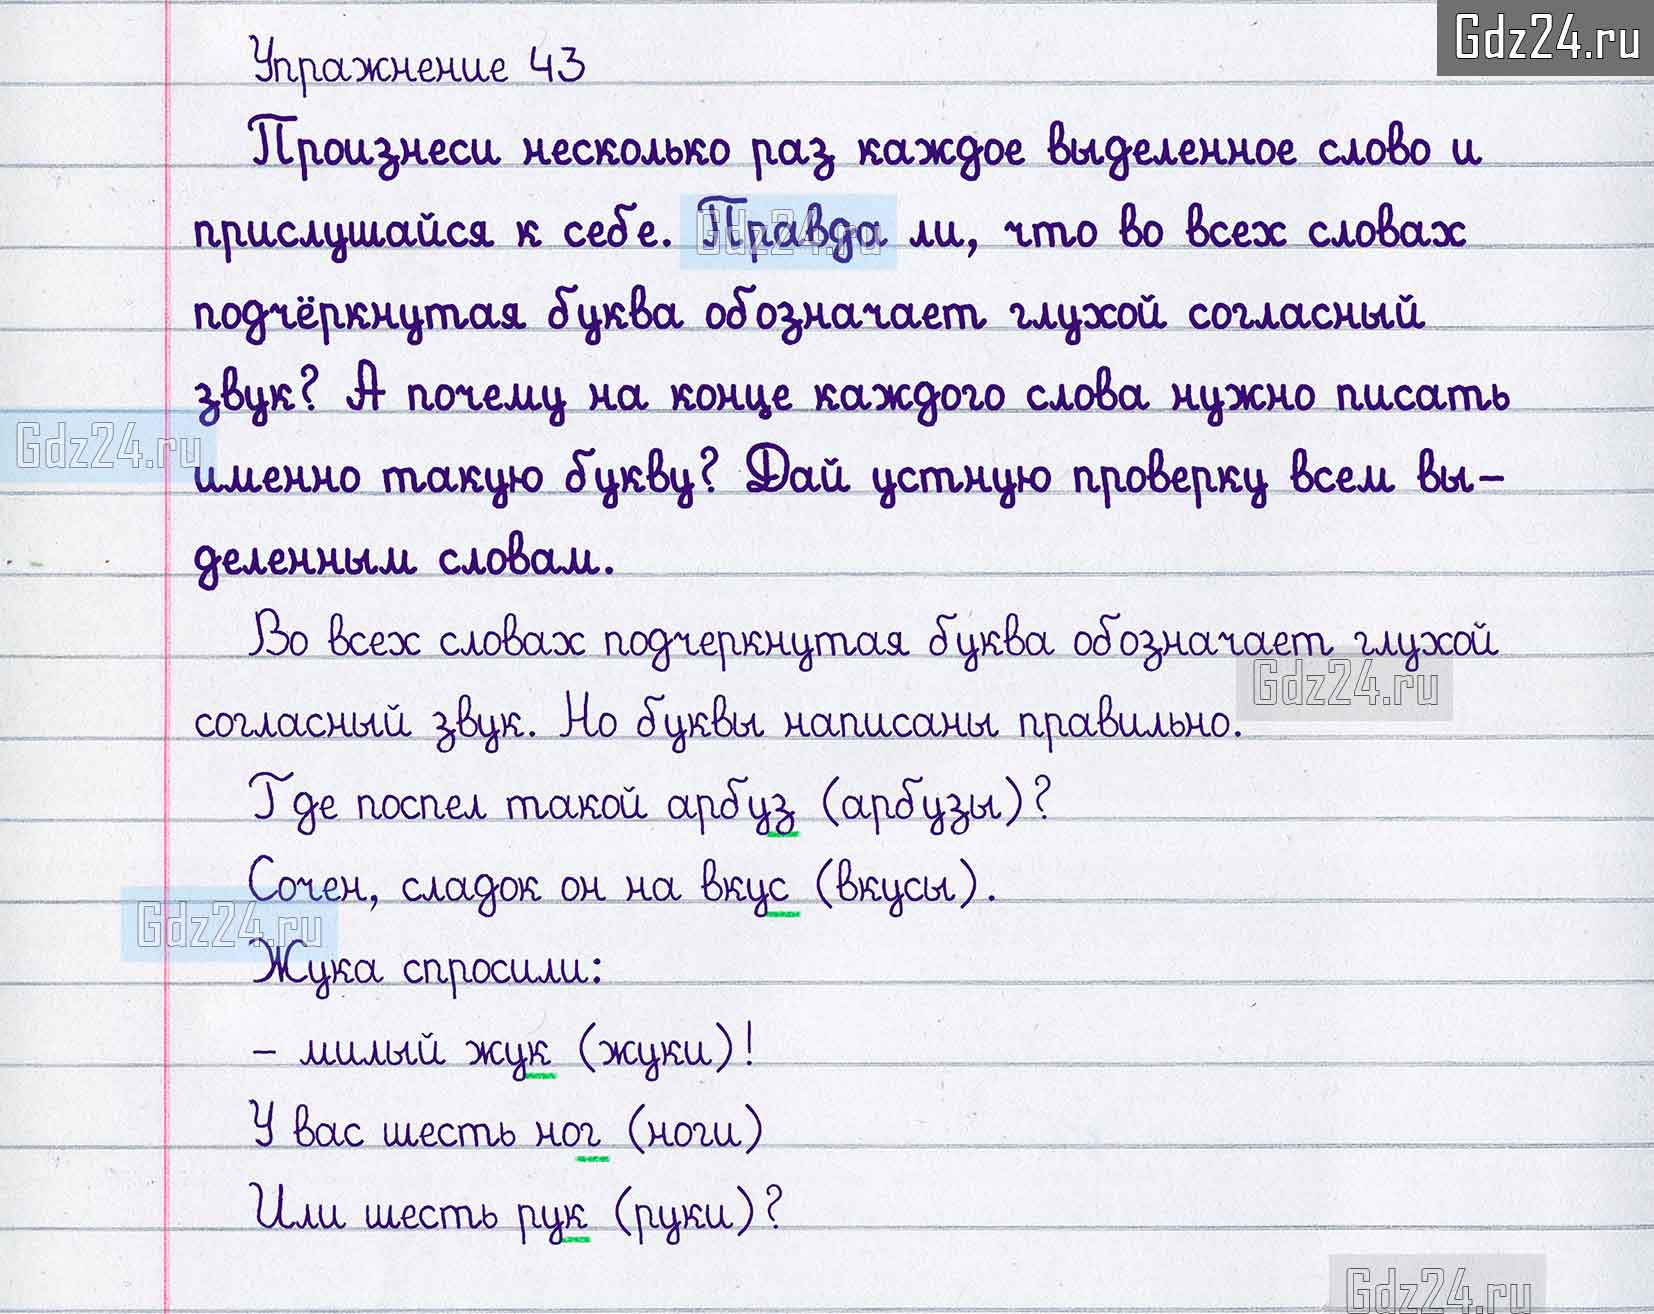 Gdz24.ru
Упражнение 43
Произнеси несколько раз каждое выделенное слово и
прислушайся к себе. Правда ли, что во всех словах
Gdz24.ru
подчёркнутая буква обозначает глухой согласный
звук? А почему на конце каждого слова нужно писать
Gdz24.ru
именно такую букву? Дай устную проверку всем вы-
деленным словам.
Во всех словах подчеркнутая буква обозначает глухой
Gdz24.ru
согласный звук. Но буквы написаны правильно.
Где поспел такой арбуз (арбузы)?
Сочен, сладок он на вкус (вкусы).
Gdz24.ru
Жука спросили:
- милый жук (жуки)!
У вас шесть ног (ноги)
Или шесть рук (руки)?
Gdz24.ru